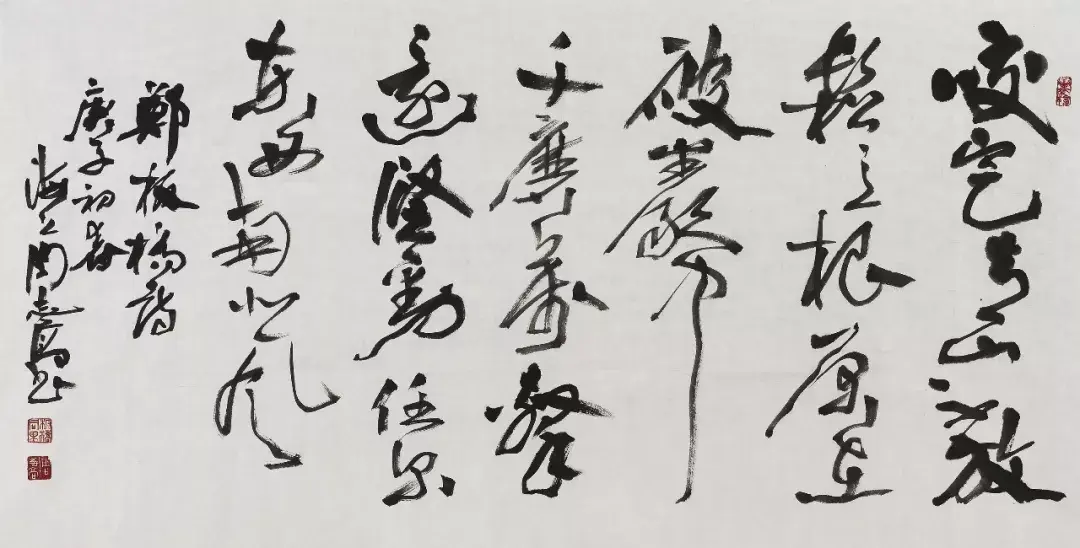 咬定青山不放
鬆立根原在
破巖中
千磨萬擊
還堅勁任尔
东西南北风
鄭板橋詩
庚子初春
海上周志高书